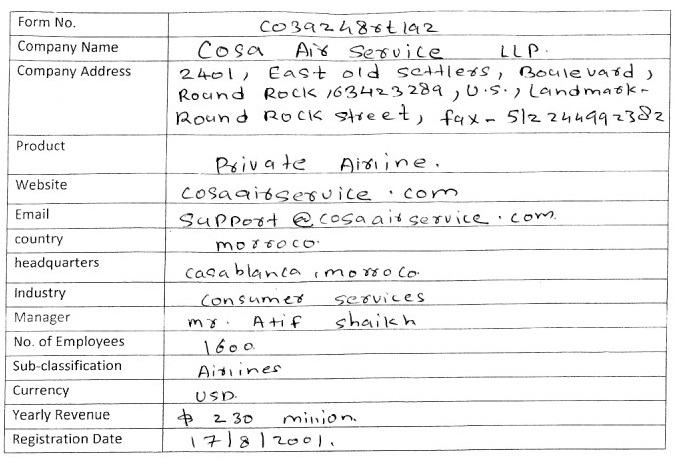 Form No. CO39248rt192
Company Name Cosa Air Service LLP.
Company Address 2401, East old settlers, Boulevard,
Round Rock, 63423289, U.S., Landmark-
Round Rock street, fax - 5122449923 82
Product Private Airline.
Website cosaairservice.com
Email support@cosaairservice.com.
country morroco.
headquarters casablanca, morroco.
Industry consumer services
Manager mr. Atif shaikh
No. of Employees 1600.
Sub-classification Airlines
Currency USD.
Yearly Revenue $ 230 million.
Registration Date 17/8/2001.